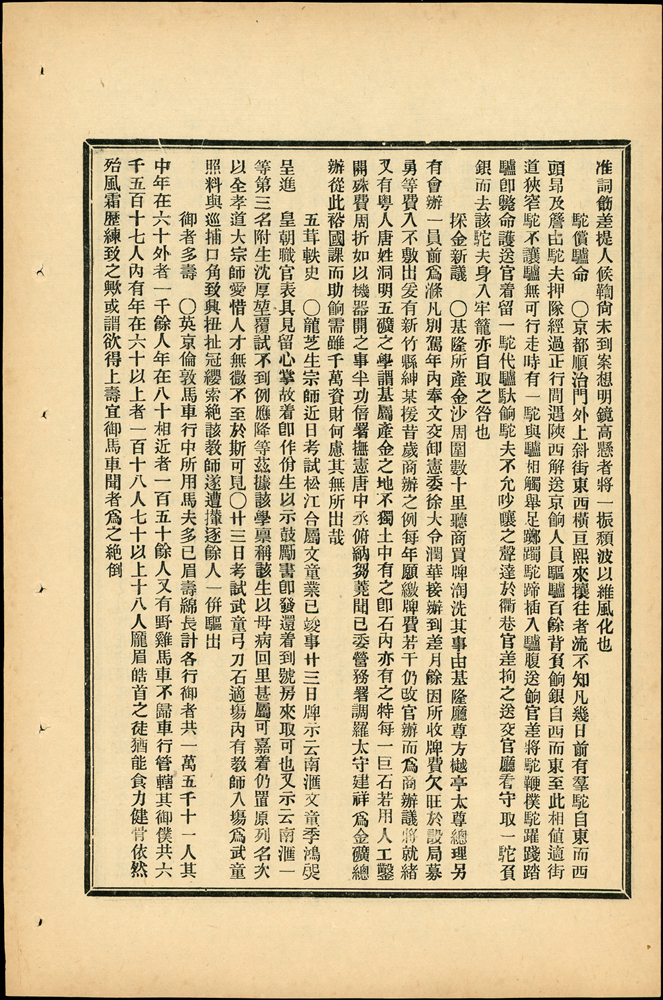 准詞飭差提人候鞫尙未到案想明鏡高懸者將一振頹波以維風化也
駝償驢命　〇京都順治門外上斜街東西橫亘熙來攘往者流不知凡幾日前有羣駝自東而西
頭昂及簷由駝夫押隊經過正行間遇陝西解送京餉人員驅驢百餘背負餉銀自西而東至此相値適街
道狹窄駝不讓驢驢無可行走時有一駝與驢相觸舉足躑躅駝蹄插入驢腹送餉官差將駝鞭樸駝躍踐踏
驢卽斃命護送官着留一駝代驢馱餉駝夫不允吵嚷之聲達於衢巷官差拘之送交官廳看守取一駝負
銀而去該駝夫身入牢籠亦自取之咎也
採金新議　〇基隆所產金沙周圍數十里聽商買牌淘洗其事由基隆廳尊方樾亭太尊總理另
有會辦一員前爲滌凡別駕年內奉文交卸憲委徐大令潤華接辦到差月餘因所收牌費欠旺於設局募
勇等費入不敷出爰有新竹縣紳某援昔歲商辦之例每年願繳牌費若干仍改官辦而爲商辦議將就緒
又有粵人唐姓洞明五礦之學謂基屬產金之地不獨土中有之卽石內亦有之特每一巨石若用人工鑿
開殊費周折如以機器開之事半功倍署撫憲唐中丞俯納芻蕘聞已委營務署調羅太守建祥爲金礦總
辦從此裕國課而助餉需雖千萬資財何慮其無所出哉
五茸軼史　〇龍芝生宗師近日考試松江合屬文童業已竣事廿三日牌示云南滙文童季鴻㷼
呈進　皇朝職官表具見留心掌故着卽作佾生以示鼓勵書卽發還着到號房來取可也又示云南滙一
等第三名附生沈厚堃覆試不到例應降等茲據該學禀稱該生以母病回里甚屬可嘉着仍置原列名次
以全孝道大宗師愛惜人才無微不至於斯可見〇廿三日考試武童弓刀石適塲內有教師入塲爲武童
照料與巡捕口角致興扭扯冠纓索絶該教師遂遭攆逐餘人一併驅出
御者多壽　〇英京倫敦馬車行中所用馬夫多已眉壽綿長計各行御者共一萬五千十一人其
中年在六十外者一千餘人年在八十相近者一百五十餘人又有野雞馬車不歸車行管轄其御僕共六
千五百十七人內有年在六十以上者一百十八人七十以上十八人龐眉皓首之徒猶能食力健骨依然
殆風霜歷練致之歟或謂欲得上壽宜御馬車聞者爲之絕倒